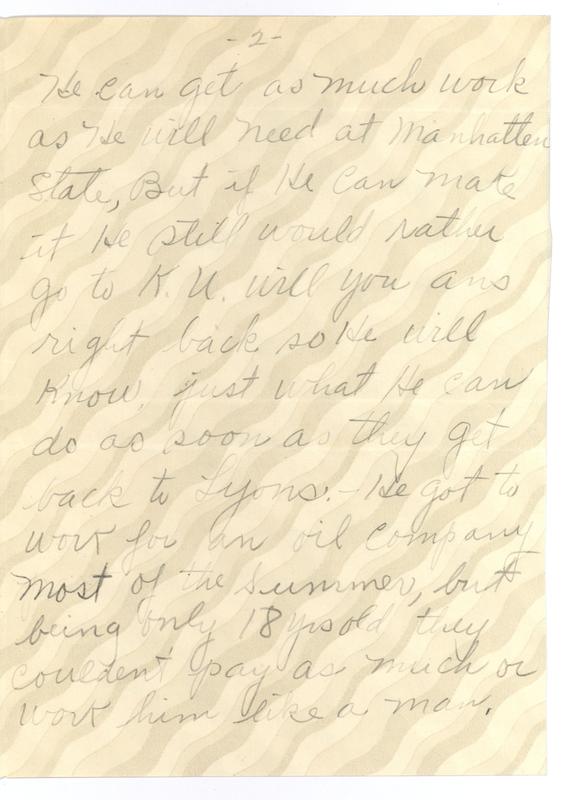 -2-
He can get as much work
as He will need at Manhatten
State, But if He Can make
it He still would rather
go to K. U. will you ans
right back so He will
Know, just what He can
do as soon as they get
back to Lyons. - He got to
work for an oil company
most of the summer, but
being only 18 yrs old they
couldent pay as much or
work him like a man.